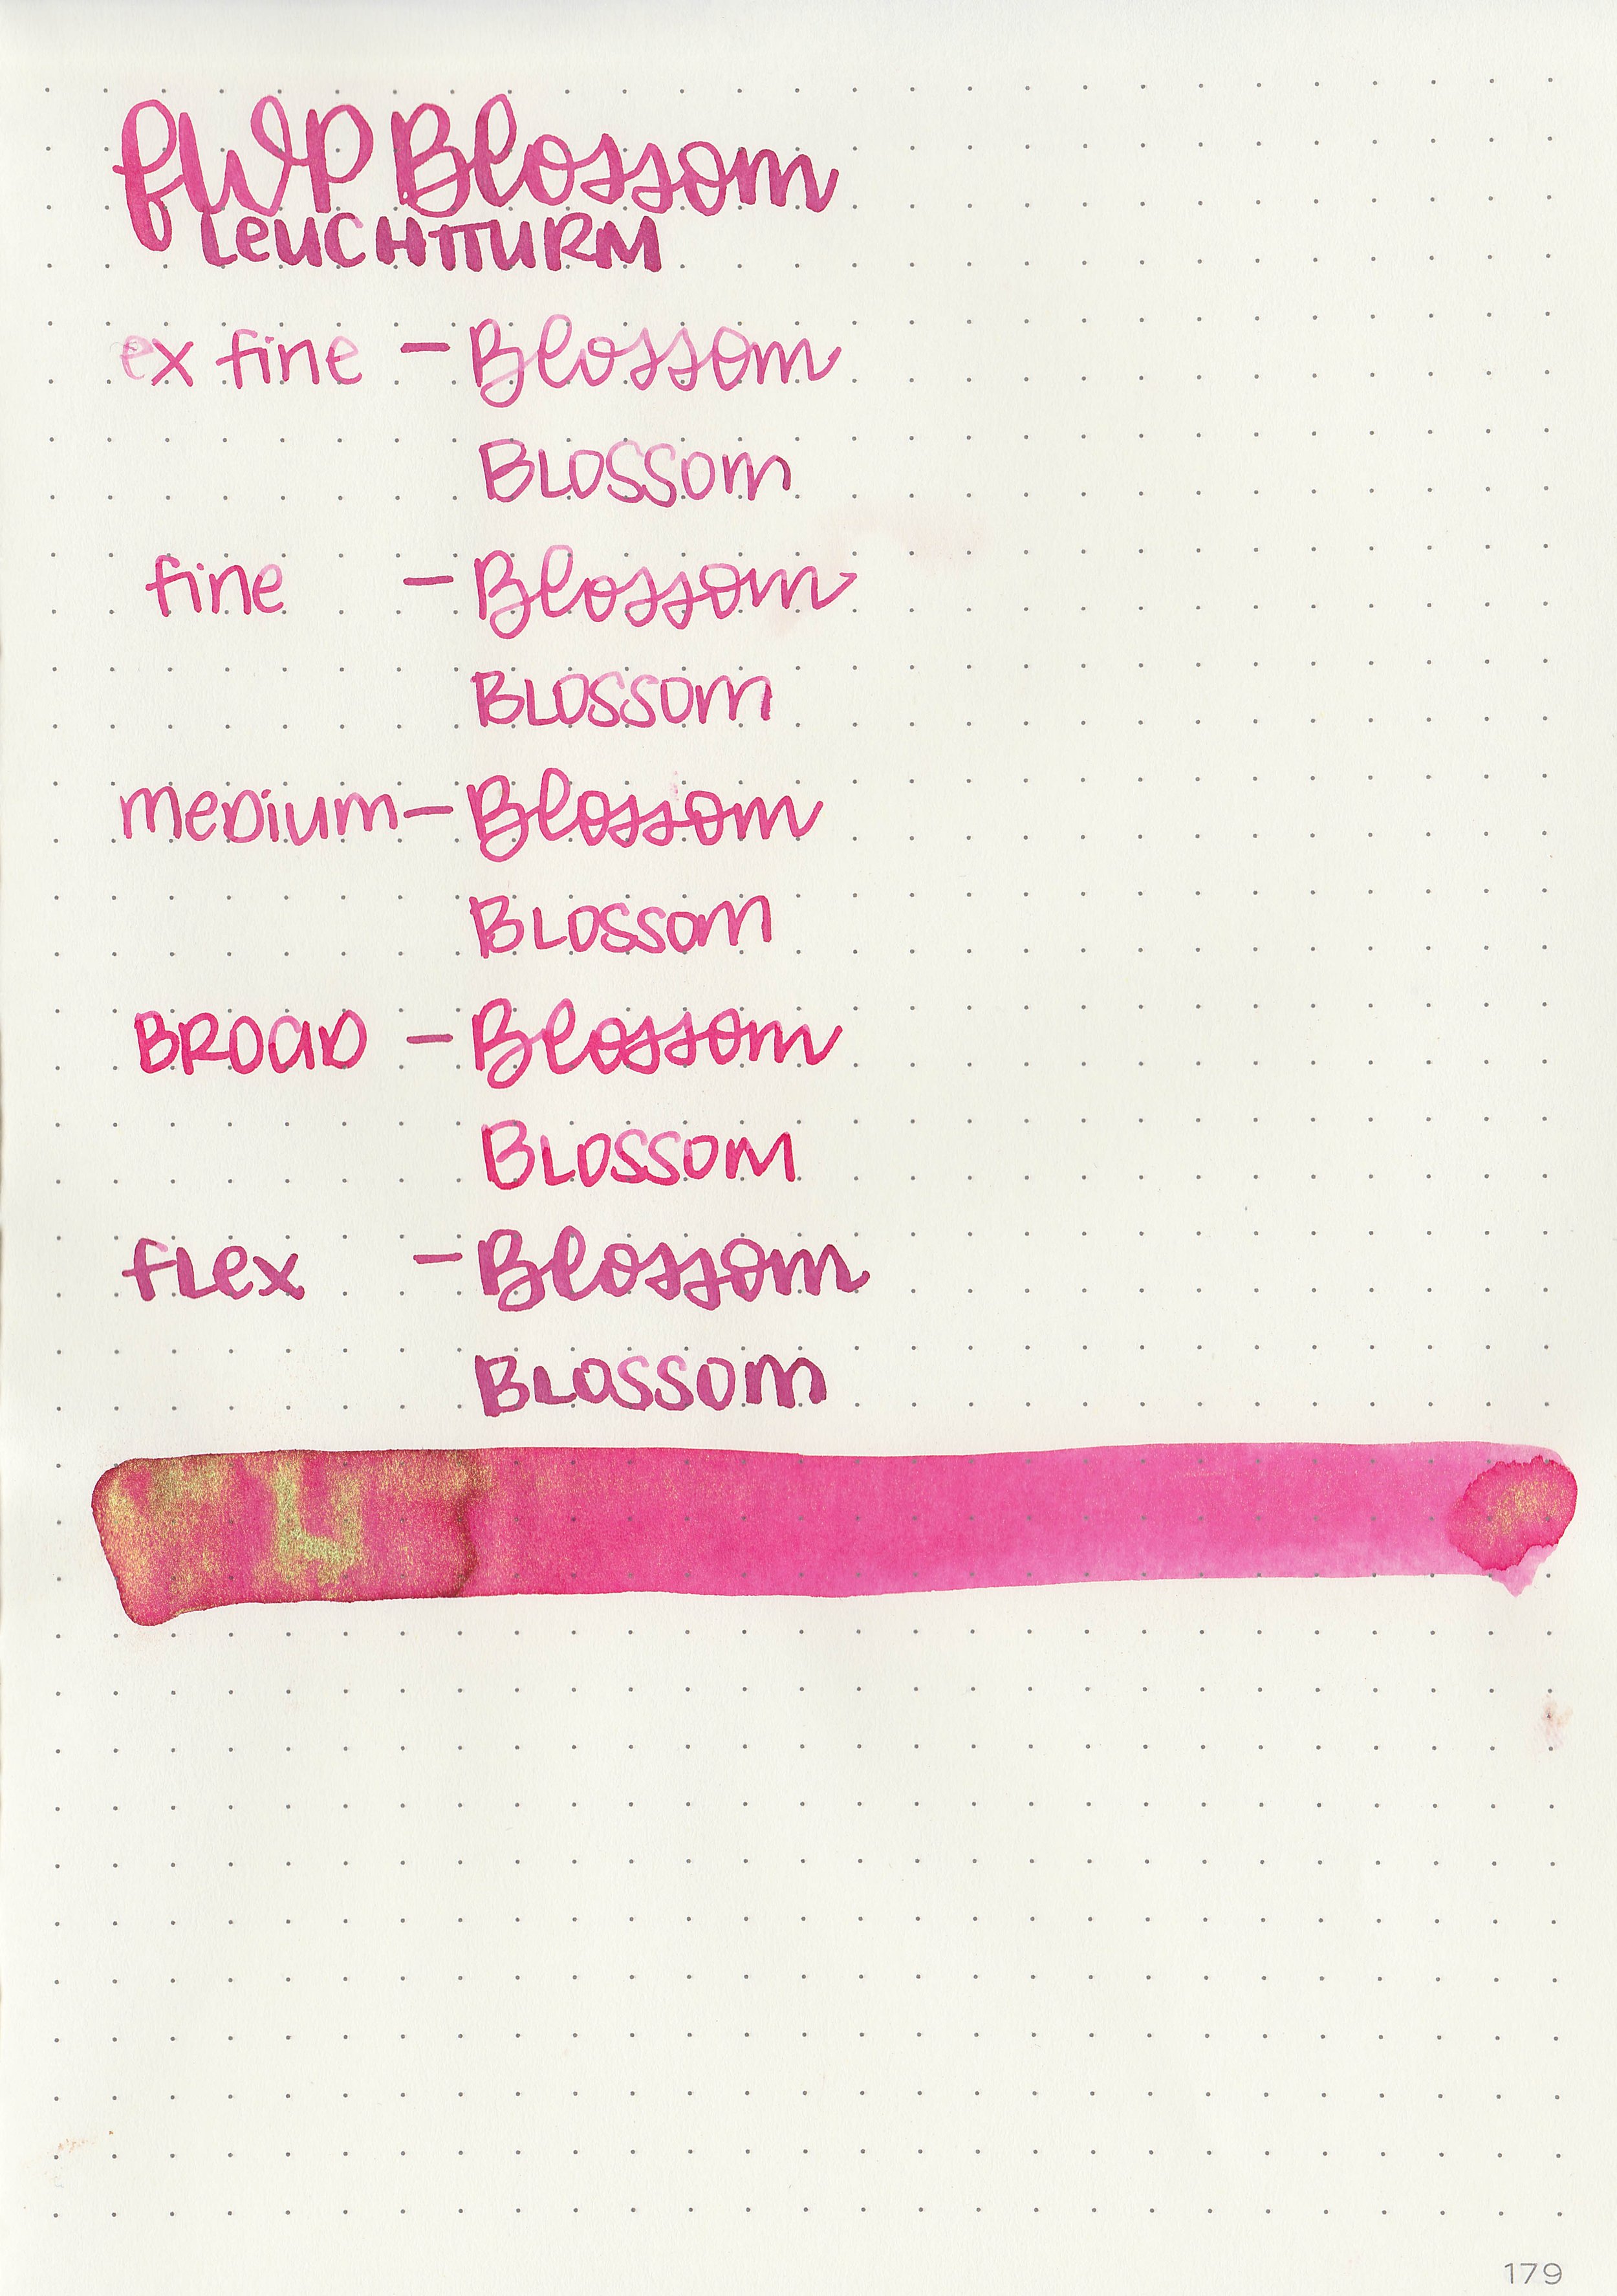 fWP Blossom
LeUCHTTURM
ex fine - Blossom
BLOSSOm
fine - Blossom
BLOSSOm
meDium - Blossom
BLOSSOm
BROaD - Blossom
BLOSSOM
fLex - Blossom
BLOSSOm
179